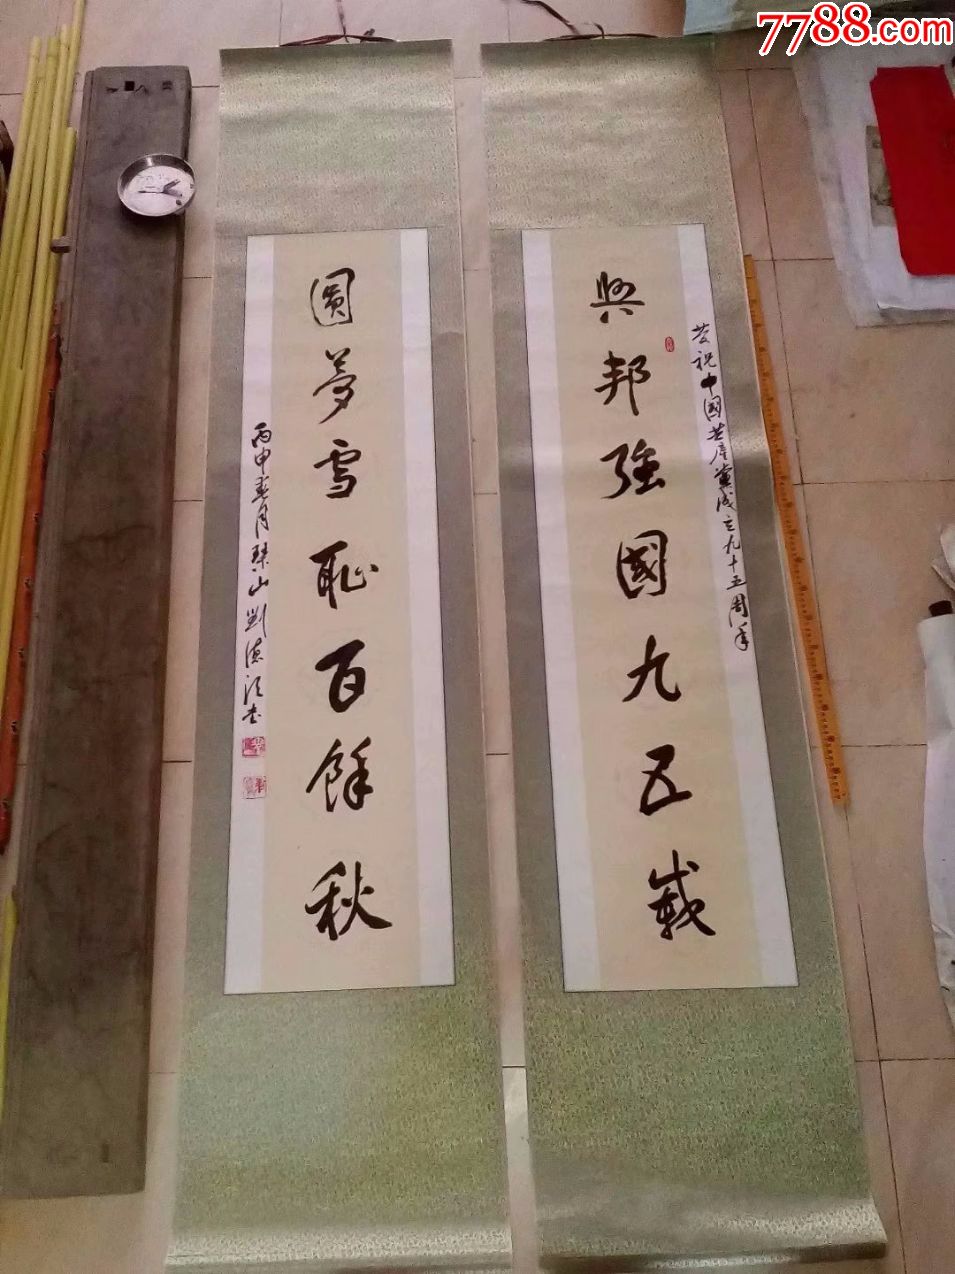 7788.com
慶祝中國共産黨成立九十五周年
興邦強國九五載
圓夢雪恥百餘秋
丙申春月琴山劉德江书